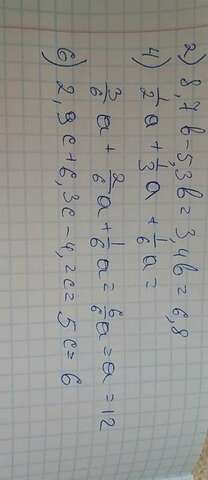 2) 8,7b-5,3b=3,4b=6,8
4) 1/2a+1/3a+1/6a=
3/6a+2/6a+1/6a=6/6a=a=12
6) 2,9c+6,3c-4,2c=5c=6